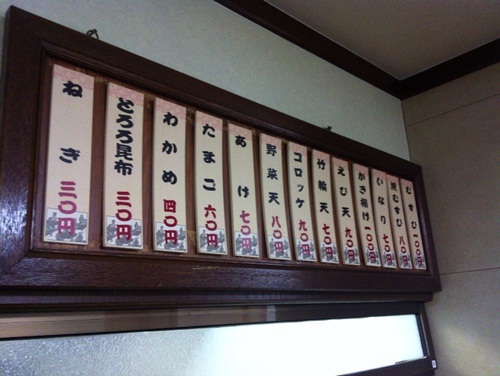 ねぎ 三〇円
とろろ昆布 三〇円
わかめ 四〇円
たまご 六〇円
あげ 七〇円
野菜天 八〇円
コロッケ 九〇円
竹輪天 七〇円
えび天 九〇円
かき揚げ 一〇〇円
いなり 七〇円
焼むすび 八〇円
むすび 一〇〇円